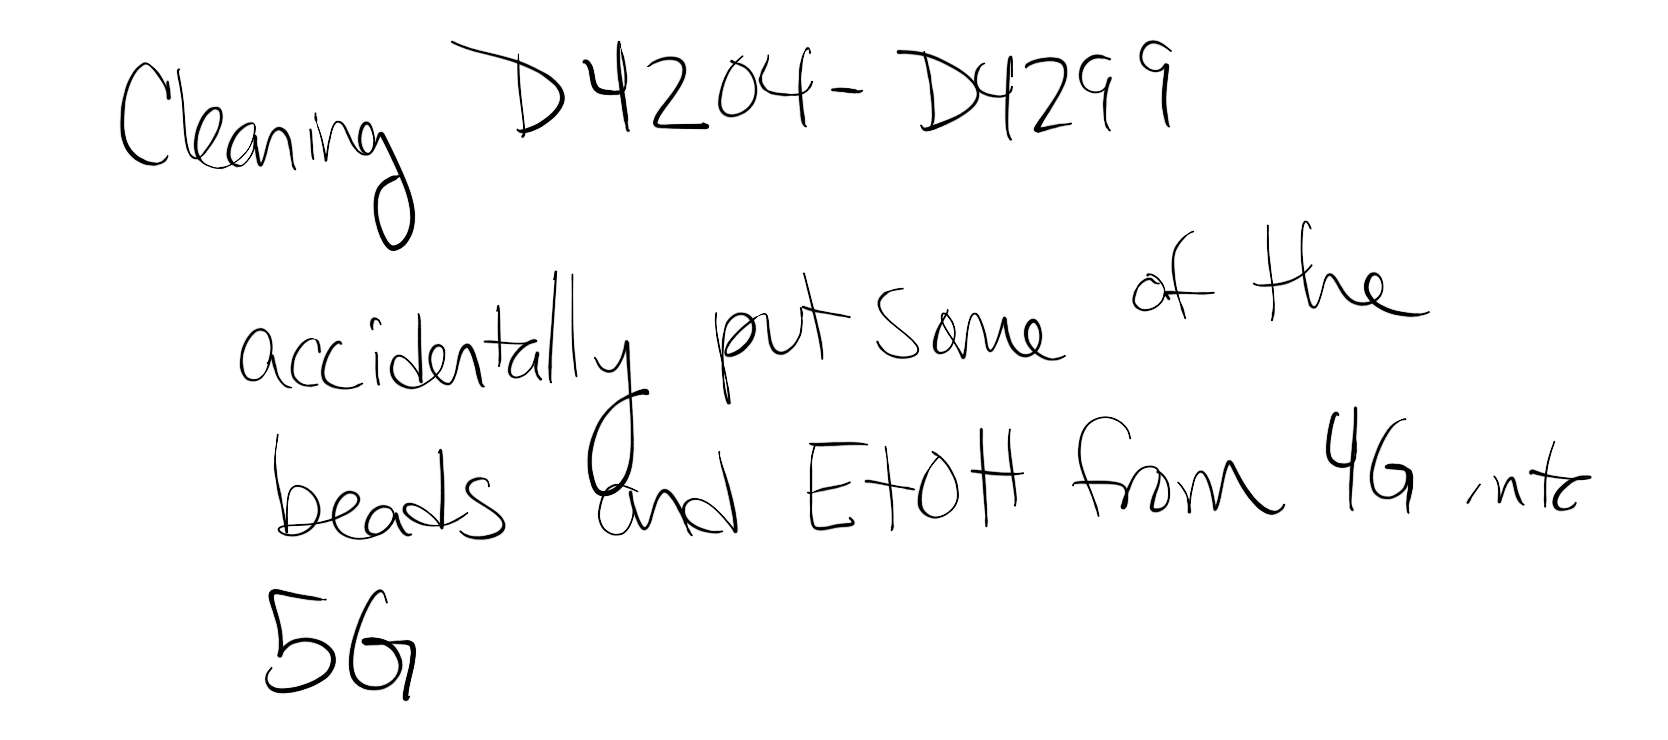 Cleaning D4204-D4299
accidentally put some of the
beads and EtOH from 4G into
5G